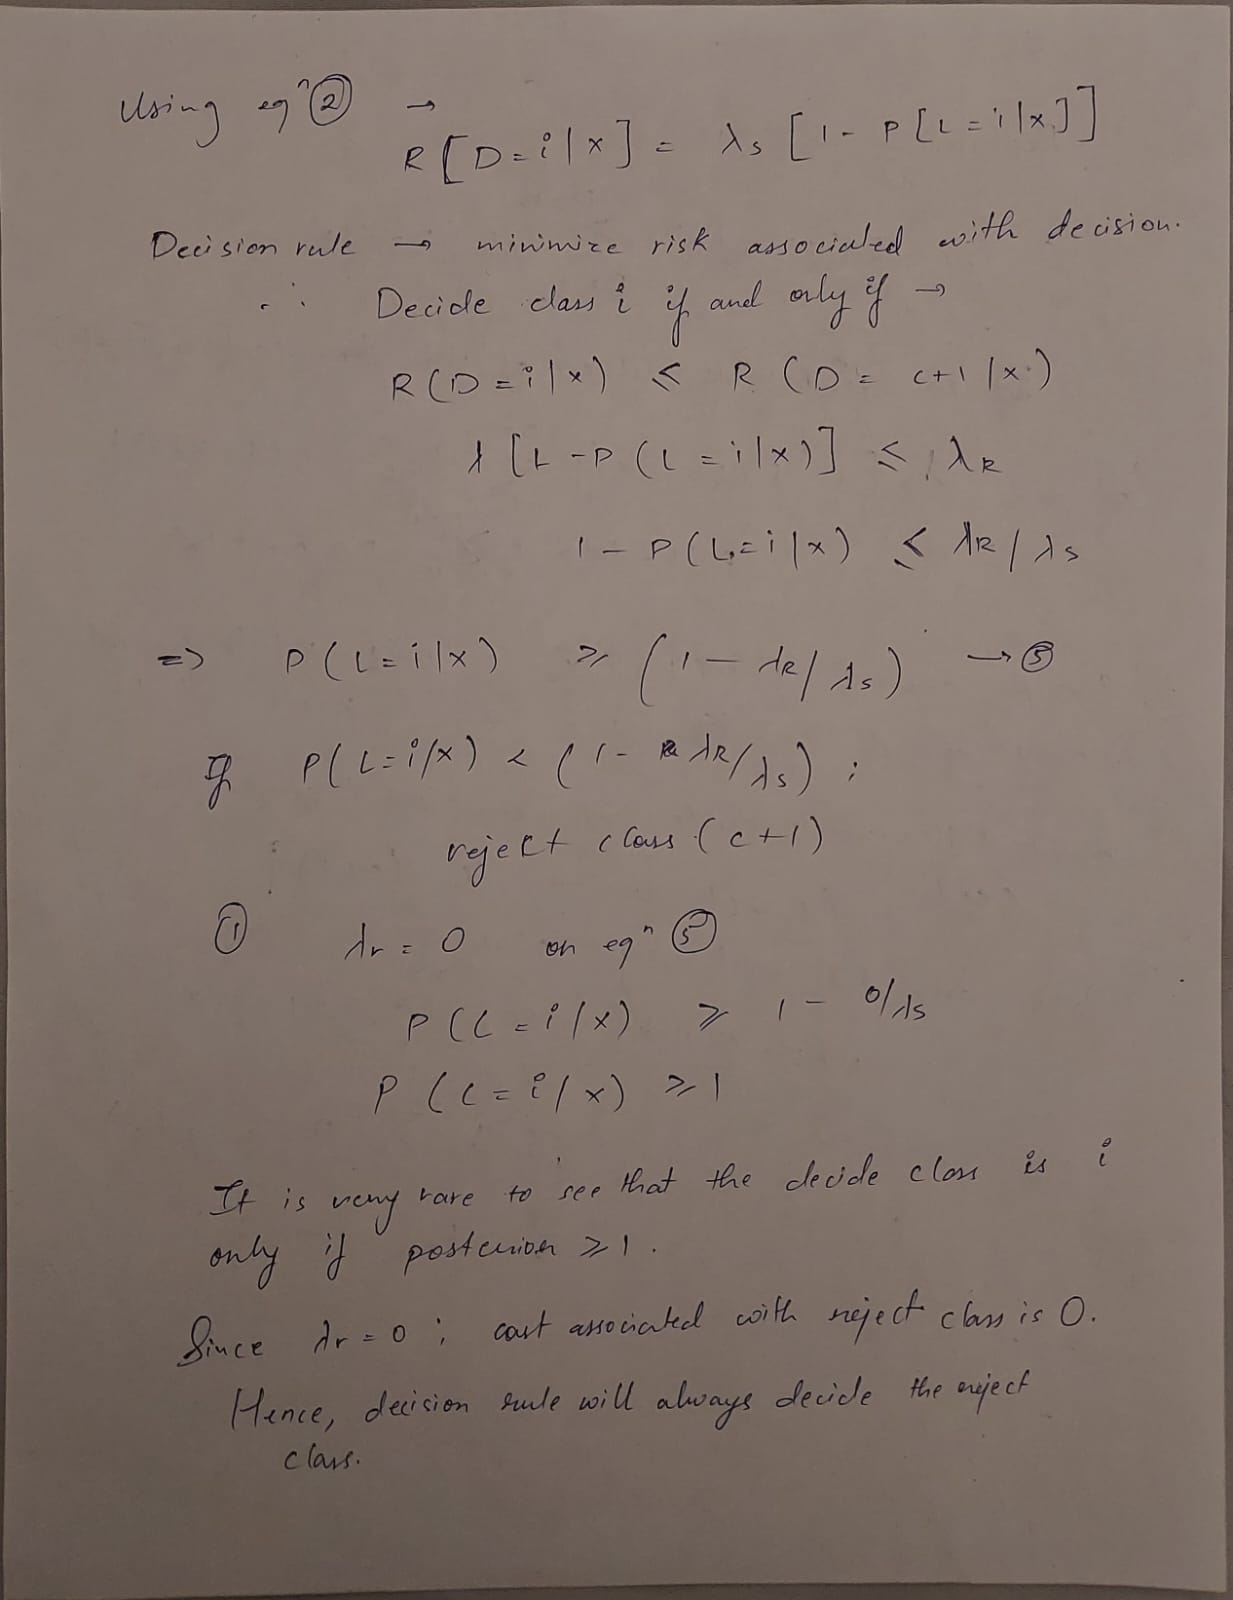 Using eqⁿ ② →
R[D=i|x] = λs [1 - P[L=i|x]]
Decision rule → minimize risk associated with decision.
∴ Decide class i if and only if →
R(D=i|x) ≤ R(D = c+1|x)
λ [1 - P(L=i|x)] ≤ λR
1 - P(L=i|x) ≤ λR/λs
=> P(L=i|x) ≥ (1 - λR/λs) → ⑤
If P(L=i|x) < (1 - λR/λs) ;
reject class (c+1)
① λr = 0 on eqⁿ ⑤
P(L=i|x) ≥ 1 - 0/λs
P(L=i|x) ≥ 1
It is very rare to see that the decide class is i
only if posterior ≥ 1.
Since λr = 0 ; cost associated with reject class is 0.
Hence, decision rule will always decide the reject
class.